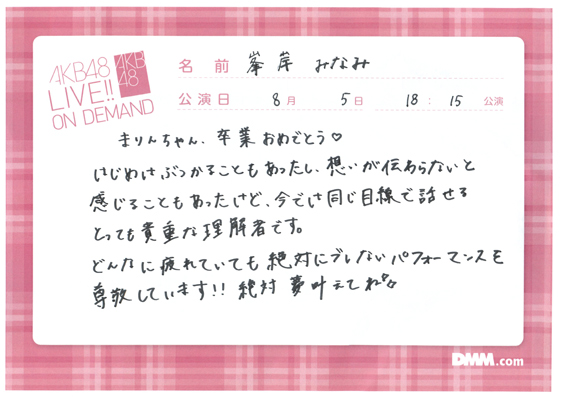 AKB48
LIVE!!
ON DEMAND
AKB
48
名前 峯岸 みなみ
公演日 8月 5日 18:15 公演
まりんちゃん、卒業おめでとう♡
はじめはぶつかることもあったし、想いが伝わらないと
感じることもあったけど、今では同じ目線で話せる
とっても貴重な理解者です。
どんなに疲れていても絶対にブレないパフォーマンスを
尊敬しています!! 絶対 夢叶えてね
DMM.com